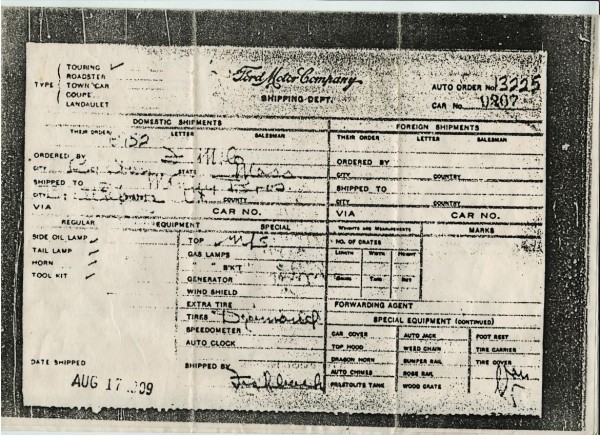 TYPE
TOURING
ROADSTER
TOWN CAR
COUPE
LANDAULET
Ford Motor Company
SHIPPING DEPT.
AUTO ORDER No 13225
CAR No. 9207
DOMESTIC SHIPMENTS
FOREIGN SHIPMENTS
THEIR ORDER LETTER SALESMAN
THEIR ORDER LETTER SALESMAN
152
ORDERED BY
ORDERED BY
CITY STATE Mass
CITY COUNTRY
SHIPPED TO
SHIPPED TO
CITY COUNTY
CITY COUNTRY
VIA CAR NO.
VIA CAR NO.
REGULAR EQUIPMENT SPECIAL
WEIGHTS AND MEASUREMENTS MARKS
SIDE OIL LAMP
TAIL LAMP
HORN
TOOL KIT
TOP
GAS LAMPS
" " BK'T
GENERATOR
WIND SHIELD
EXTRA TIRE
TIRES Diamond
SPEEDOMETER
AUTO CLOCK
NO. OF CRATES
LENGTH WIDTH HEIGHT
GROSS TARE NET
FORWARDING AGENT
SPECIAL EQUIPMENT (CONTINUED)
CAR COVER AUTO JACK FOOT REST
TOP HOOD WEED CHAIN TIRE CARRIER
DRAGON HORN BUMPER RAIL TIRE COVER
AUTO CHIMES ROBE RAIL
PRESTOLITE TANK WOOD CRATE
DATE SHIPPED
AUG 17 1909
SHIPPED BY